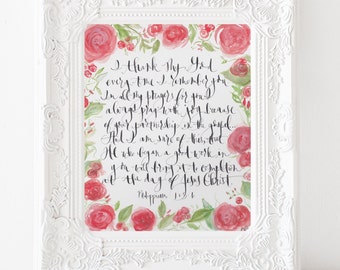 I thank My God
every time I remember you
In all my prayers for you I
always pray with joy because
of your partnership in the gospel
And I am sure of this that
He who began a good work in
you will bring it to completion
at the day of Jesus Christ
Philippians 1:3-6